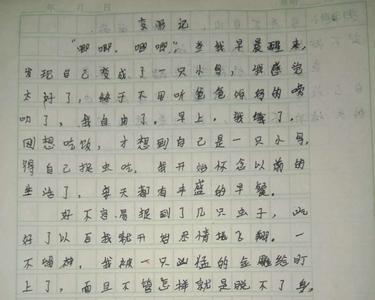 变形记
“唧唧，唧唧”，当我早晨醒来，
发现自己变成了一只小鸟，我感觉
太好了，终于不用听爸爸妈妈的唠
叨了，我自由了。早上，我饿了，
想吃饭，才想到自己是一只小鸟，
得自己捉虫吃。我开始怀念以前的
生活了，每天都有丰盛的早餐。
好不容易捉到了几只虫子，吃
好了以后我就开始尽情地飞翔。一
不留神，我被一只凶猛的金雕给盯
上了，而且不管怎样就是脱不了身。